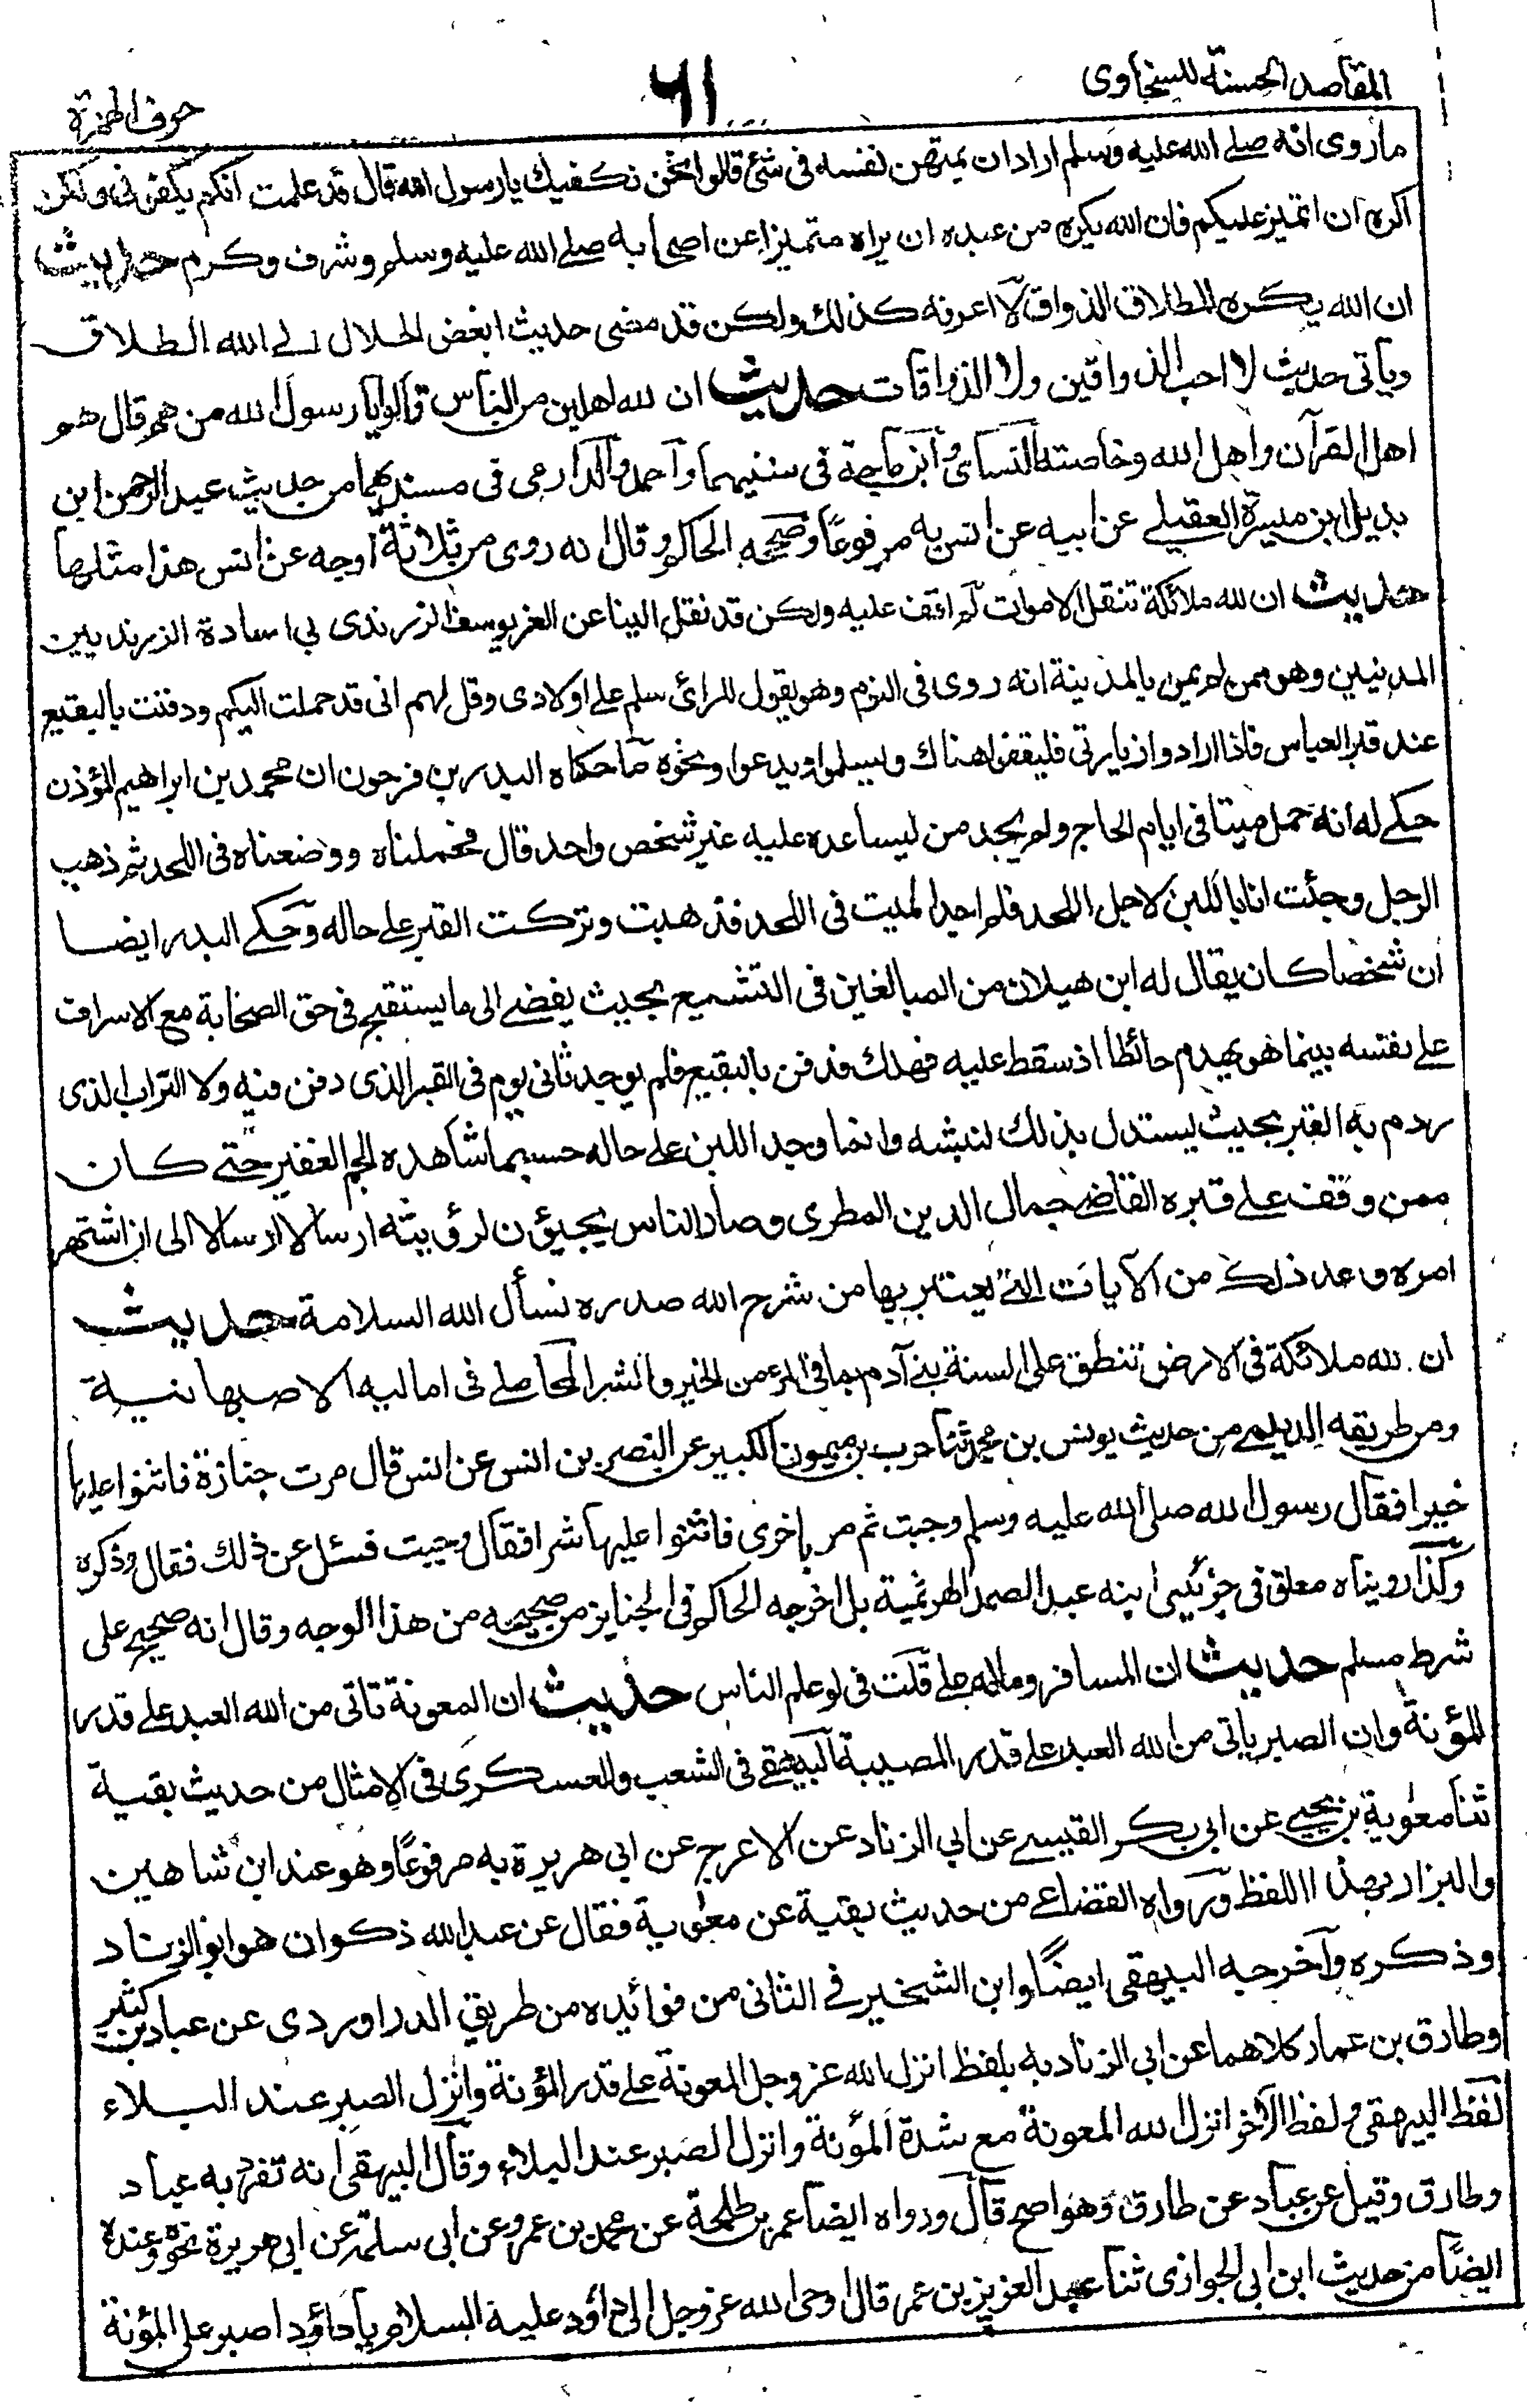 المقاصد الحسنة للسخاوى
٦١
حرف الهمزة
ما روى انه صلے الله عليه وسلم اراد ان يمتهن نفسه فى شئ قالوا نحن نكفيك يا رسول الله قال قد علمت انكم تكفونى ولكن
اكره ان اتميز عليكم فان الله يكره من عبده ان يراه متميزا عن اصحابه صلے الله عليه وسلم وشرف وكرم حديث
ان الله يكره المطلاق الذواق لا اعرفه كذلك ولكن قد مضى حديث ابغض الحلال لے الله الطلاق
وياتى حديث لا احب الذواقين ولا الذواقات حديث ان لله اهلين من الناس قالوا يا رسول الله من هم قال هم
اهل القرآن واهل الله وخاصته النسائى وابن ماجة فى سننيهما واحمد والدارمى فى مسنديهما من حديث عبد الرحمن ابن
بديل ابن ميسرة العقيلے عن ابيه عن انس به مرفوعًا وصححه الحاكم وقال انه روى من ثلاثة اوجه عن انس هذا مثلها
حديث ان لله ملائكة تنقل الاموات لم اقف عليه ولكن قد نقل الينا عن العز يوسف الزرندى بى اسادة الزرنديين
المدنيين وهو ممن لم يمت بالمدينة انه روى فى النوم وهو يقول للرائى سلم على اولادى وقل لهم انى قد حملت اليكم ودفنت بالبقيع
عند قبر العباس فاذا ارادوا زيارتى فليقفوا هناك ويسلموا ويدعوا ونحوه ما حكاه البدر بن فرحون ان محمد بن ابراهيم المؤذن
حكے له انه حمل ميتا فى ايام الحاج ولم يجد من يساعده عليه غير شخص واحد قال فحملناه ووضعناه فى اللحد ثم ذهب
الرجل وجئت انا باللبن لاجل اللحد فلم اجد الميت فى اللحد فذهبت وتركت القبر على حاله وحكے البدر ايضا
ان شخصا كان يقال له ابن هيلان من المبالغين فى التشيع بحيث يفضے الى ما يستقبح فى حق الصحابة مع الاسراف
علے نفسه بينما هو يهدم حائطا اذ سقط عليه فهلك فدفن بالبقيع فلم يوجد ثانى يوم فى القبر الذى دفن فيه ولا التراب الذى
ردم به القبر بحيث يستدل بذلك لنبشه وانما وجد اللبن على حاله حسبما شاهده الجم الغفير حتے كان
ممن وقف علے قبره القاضے جمال الدين المطرى وصار الناس يجيؤن لرؤيته ارسالا ارسالا الى ان اشتهر
امره وعد ذلك من الآيات التے يعتبر بها من شرح الله صدره نسأل الله السلامة حديث
ان لله ملائكة فى الارض تنطق على السنة بنے آدم بما فى المرء من الخير والشر الحاصلے فى اماليه الاصبهانية
ومن طريقه الديلمے من حديث يونس بن محمد ثنا حرب بن ميمون الكبير عن النضر بن انس عن انس قال مرت جنازة فاثنوا عليها
خيرا فقال رسول الله صلى الله عليه وسلم وجبت ثم مر باخرى فاثنوا عليها شرا فقال وجبت فسئل عن ذلك فقال وذكره
وكذا رويناه معلق فى جزئيبى ابنه عبد الصمد الهرثمية بل اخرجه الحاكم فى الجنايز من صحيحه من هذا الوجه وقال انه صحيح على
شرط مسلم حديث ان المسافر وماله علے قلت فى لو علم الناس حديث ان المعونة تاتى من الله العبد علے قدر
المؤنة وان الصبر ياتى من الله العبد علے قدر المصيبة البيهقے فى الشعب والعسكرى فى الامثال من حديث بقية
ثنا معٰوية بن يحيے عن ابى بكر القيسے عن ابى الزناد عن الاعرج عن ابى هريرة به مرفوعًا وهو عند ابن شاهين
والبزار بهذا اللفظ ورواه القضاعے من حديث بقية عن معٰوية فقال عن عبد الله ذكوان هو ابو الزناد
وذكره واخرجه البيهقى ايضًا وابن الشخير فے الثانى من فوائده من طريق الدراوردى عن عباد بن كثير
وطارق بن عمار كلاهما عن ابى الزناد به بلفظ انزل الله عز وجل المعونة علے قدر المؤنة وانزل الصبر عند البلاء
لفظ البيهقى ولفظ الآخر انزل الله المعونة مع شدة المؤنة وانزل الصبر عند البلاء وقال البيهقى انه تفرد به عباد
وطارق وقيل عن عباد عن طارق وهو اصح قال ورواه ايضا عمر بن طلحة عن محمد بن عمرو عن ابى سلمة عن ابى هريرة نحوه وعنده
ايضًا من حديث ابن ابى الحوارى ثنا عبد العزيز بن عمر قال اوحى الله عز وجل الى داؤد علية السلام يا داؤد اصبر على المؤنة